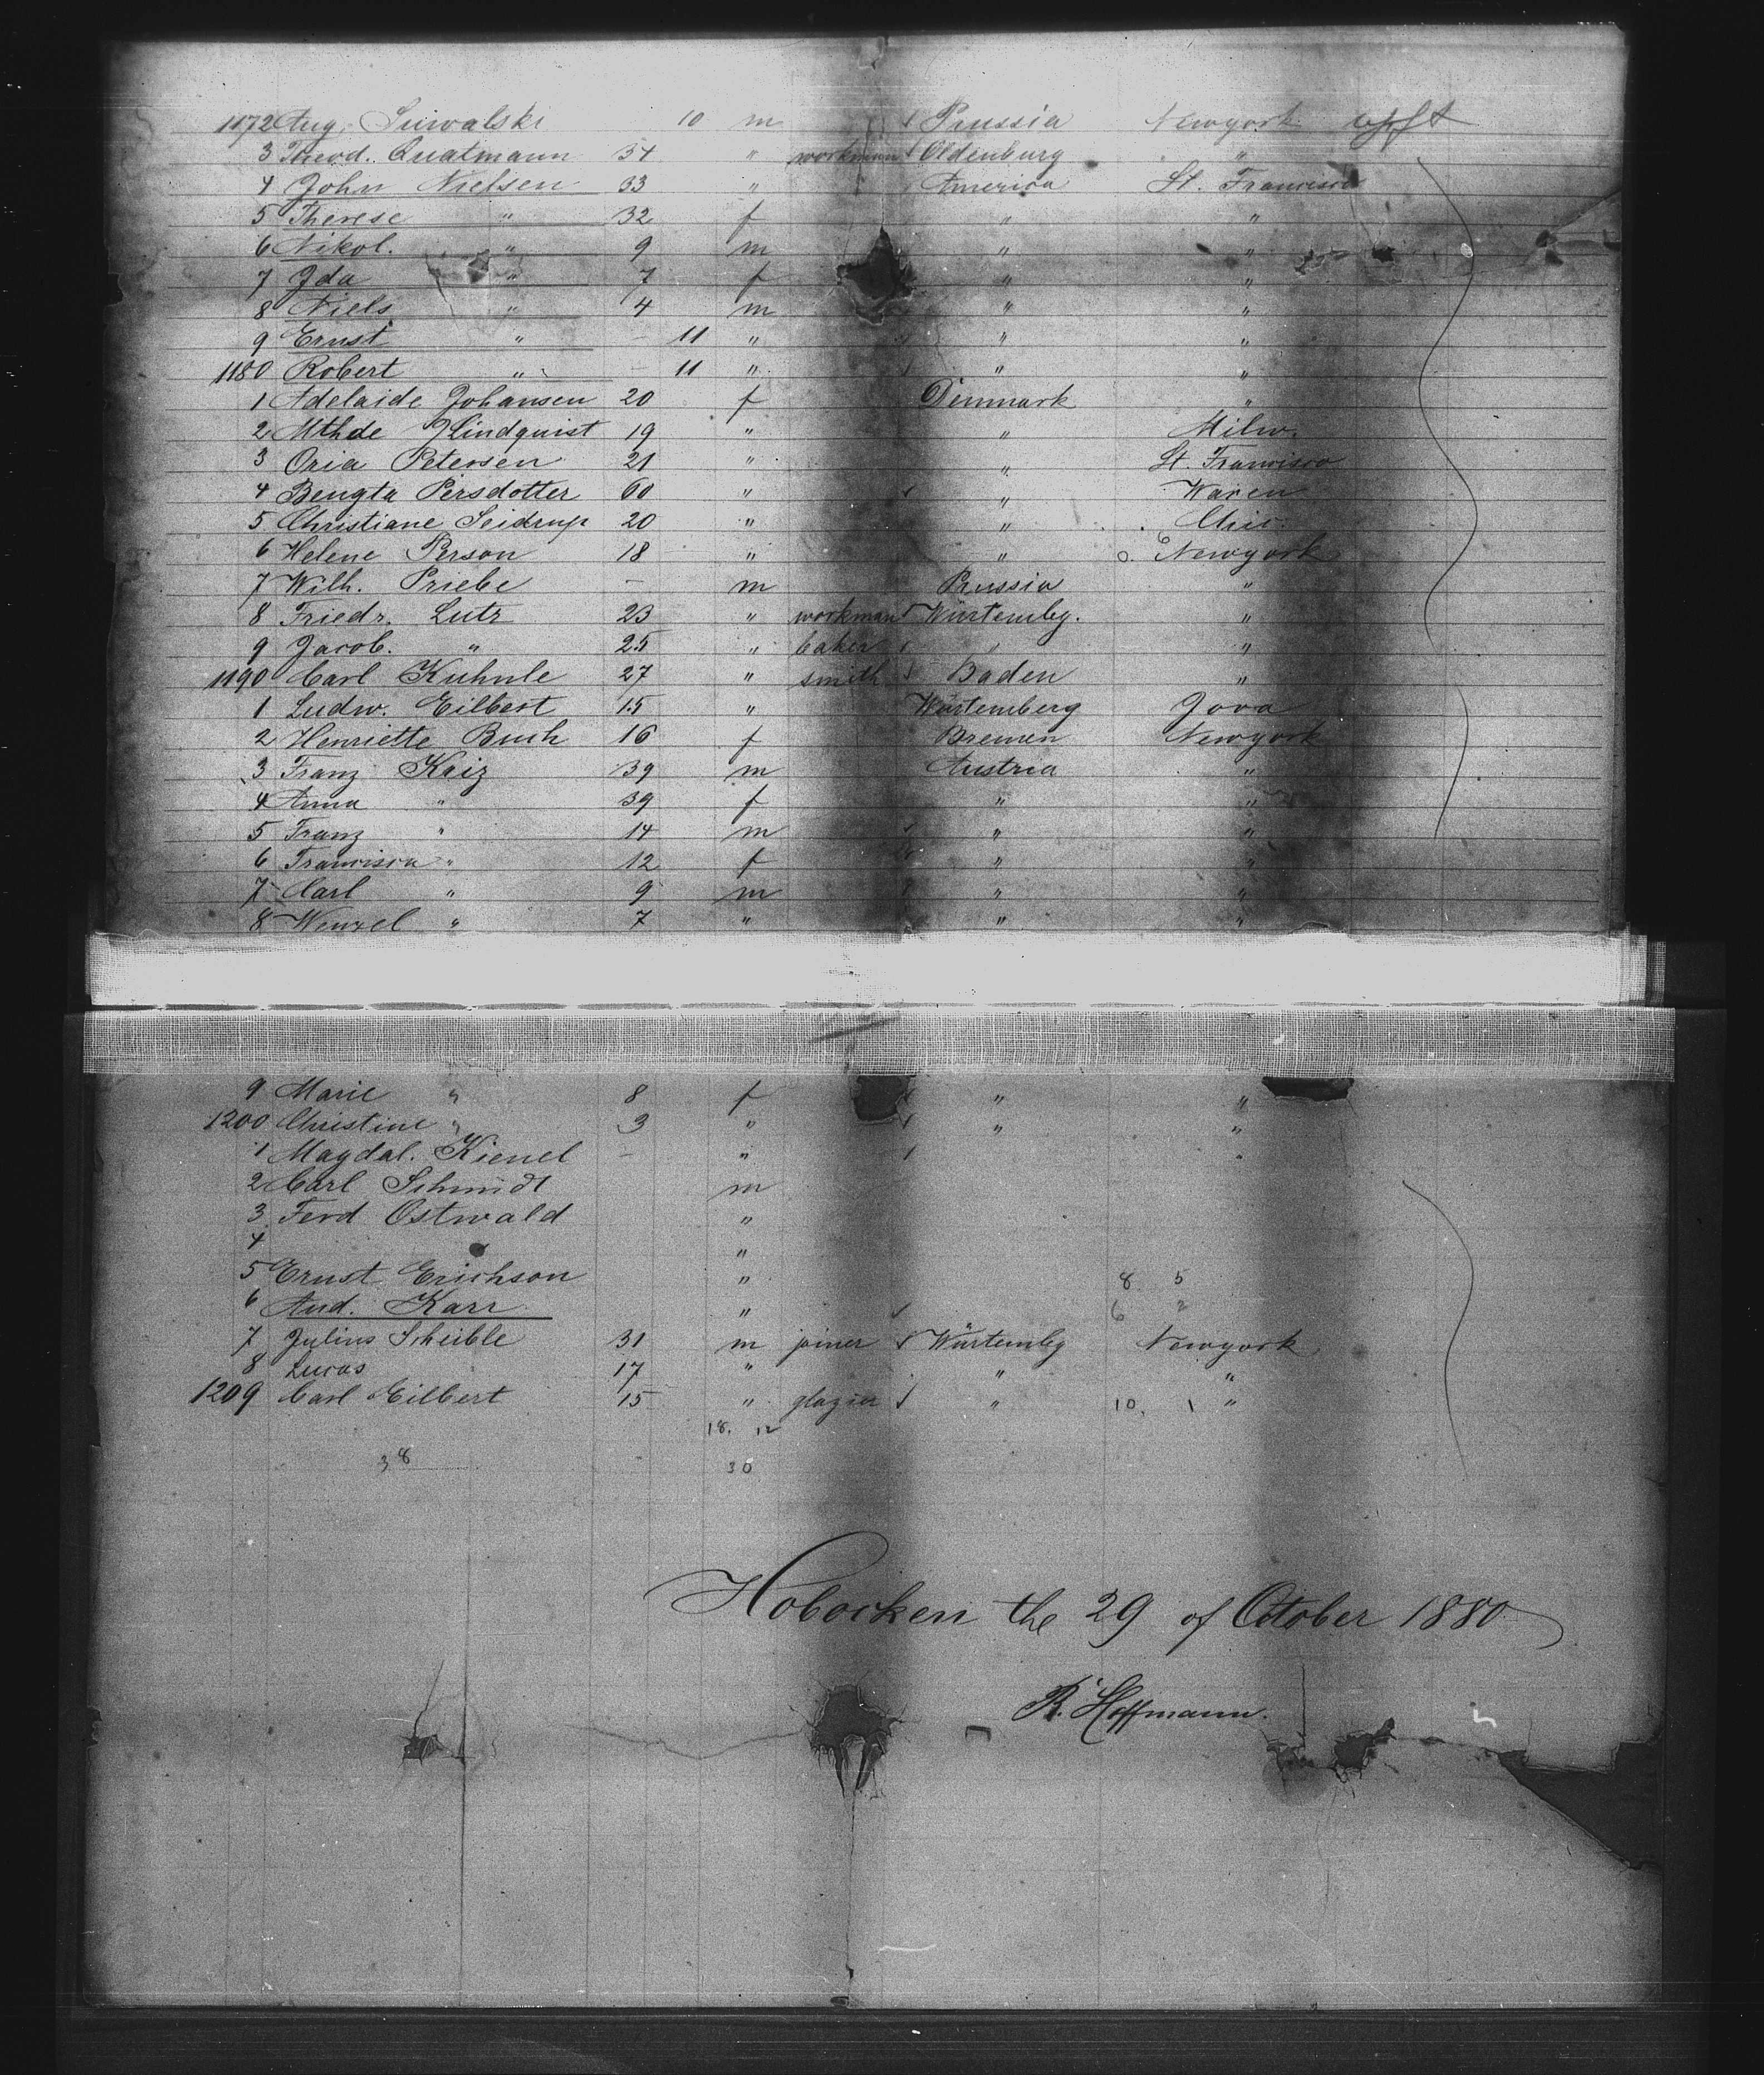 1172 Aug. Suwalski 10 m Prussia Newyork
3 Theod. Quatmann 34 " workman Oldenburg "
4 John Nielsen 33 " America St. Francisco
5 Therese " 32 f " "
6 Nikol. " 9 m " "
7 Ida " 7 f " "
8 Niels " 4 m " "
9 Ernst " - 11 " " "
1180 Robert " - 11 " " "
1 Adelaide Johansen 20 f Denmark "
2 Mthde Lindquist 19 " " Milw.
3 Oria Petersen 21 " " St. Francisco
4 Bengta Persdotter 60 " " Waren
5 Christiane Seidrup 20 " " Chic.
6 Helene Person 18 " " Newyork
7 Wilh. Priebe - m Prussia "
8 Friedr. Lutz 23 " workman Würtembg. "
9 Jacob. " 25 " baker " "
1190 Carl Kuhnle 27 " smith Baden "
1 Ludw. Eilbert 15 " Würtemberg Jova
2 Henriette Buch 16 f Bremen Newyork
3 Franz Kriz 39 m Austria "
4 Anna " 39 f " "
5 Franz " 14 m " "
6 Francisca " 12 f " "
7 Carl " 9 m " "
8 Wenzel " 7 " " "
9 Marie " 8 f " "
1200 Christine " 3 " " "
1 Magdal. Kienel - " "
2 Carl Schmidt m
3 Ferd Ostwald "
4 "
5 Ernst Erichson " 8 5
6 And. Karr " 6 2
7 Julius Scheible 31 m joiner Würtembg Newyork
8 Lucas 17 " " "
1209 Carl Eilbert 15 " glazier " 10. 1 "
18. 12
38 30
Hobocken the 29 of October 1880
R. Hoffmann.